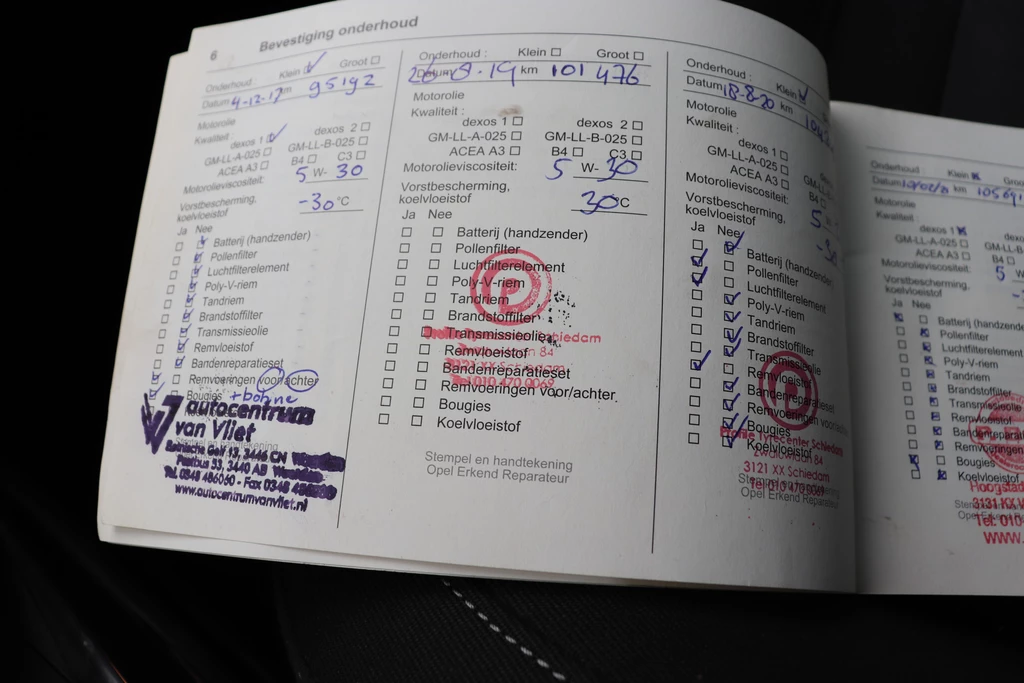 6 Bevestiging onderhoud
Onderhoud : Klein Groot
Datum 4-12-17 km 95192
Motorolie
Kwaliteit :
dexos 1 dexos 2
GM-LL-A-025 GM-LL-B-025
ACEA A3 B4 C3
Motorolieviscositeit: 5 W- 30
Vorstbescherming,
koelvloeistof -30 °C
Ja Nee
Batterij (handzender)
Pollenfilter
Luchtfilterelement
Poly-V-riem
Tandriem
Brandstoffilter
Transmissieolie
Remvloeistof
Bandenreparatieset
Remvoeringen voor/achter
Bougies
autocentrum
van Vliet
3446 CN
Postbus 33, 3440 AB
Tel. 0348 486060 - Fax 0348
www.autocentrumvanvliet.nl
Onderhoud : Klein Groot
Datum 26-8-19 km 101 476
Motorolie
Kwaliteit :
dexos 1 dexos 2
GM-LL-A-025 GM-LL-B-025
ACEA A3 B4 C3
Motorolieviscositeit: 5 W- 30
Vorstbescherming,
koelvloeistof 30 °C
Ja Nee
Batterij (handzender)
Pollenfilter
Luchtfilterelement
Poly-V-riem
Tandriem
Brandstoffilter
Transmissieolie
Remvloeistof
Bandenreparatieset
Remvoeringen voor/achter
Bougies
Koelvloeistof
Schiedam
84
010 470 0069
Stempel en handtekening
Opel Erkend Reparateur
Onderhoud : Klein
Datum 18-8-20 km
Motorolie
Kwaliteit :
dexos 1
GM-LL-A-025
ACEA A3 B4
Motorolieviscositeit: 5
Vorstbescherming,
koelvloeistof
Ja Nee
Batterij (handzender
Pollenfilter
Luchtfilterelement
Poly-V-riem
Tandriem
Brandstoffilter
Transmissieolie
Remvloeistof
Bandenreparatieset
Remvoeringen
Bougies
Koelvloeistof
Profile Tyrecenter Schiedam
84
3121 XX Schiedam
Tel. 010 470 0069
Opel Erkend Reparateur
Onderhoud : Klein
Datum km
Motorolie
Kwaliteit :
dexos 1
GM-LL-A-025
ACEA A3
Motorolieviscositeit: 5
Vorstbescherming,
koelvloeistof
Ja Nee
Batterij
Pollenfilter
Luchtfilterelement
Poly-V-riem
Tandriem
Brandstoffilter
Transmissieolie
Remvloeistof
Bougies
Koelvloeistof
3131 KX
Tel: 010
www.